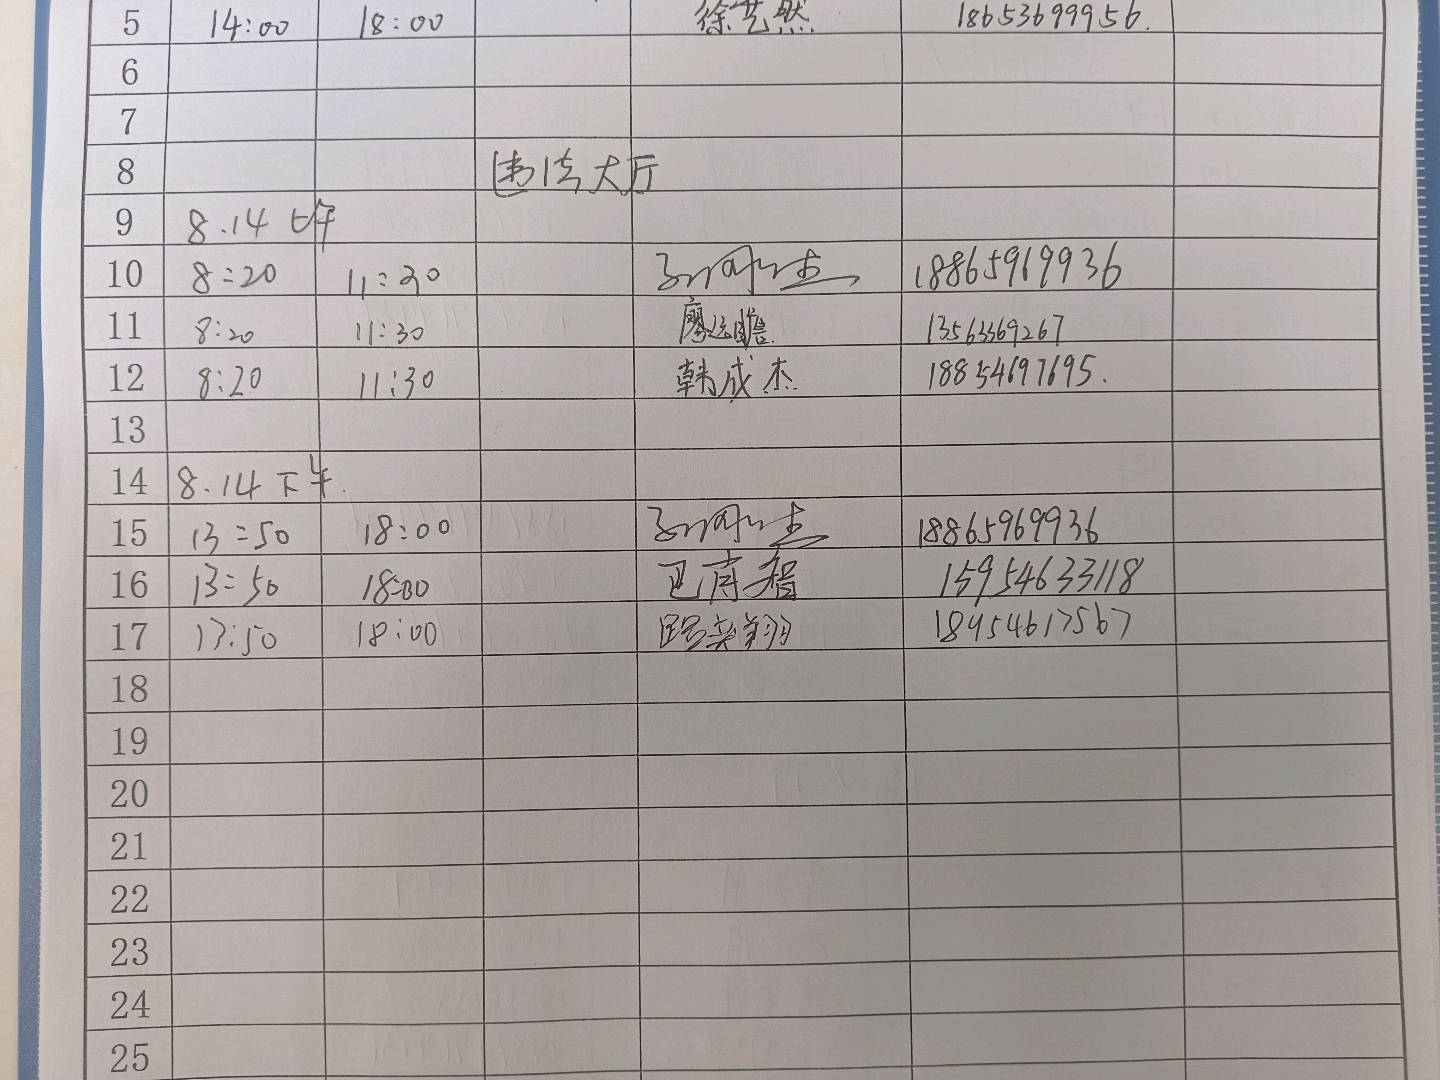 5 14:00 18:00 徐艺然 18653699956.
6
7
8 违法大厅
9 8.14 上午
10 8:20 11:30 18865969936
11 8:20 11:30 廖远瞻 13563369267
12 8:20 11:30 韩成杰 18854697695.
13
14 8.14 下午.
15 13:50 18:00 18865969936
16 13:50 18:00 15954633118
17 13:50 18:00 路英翔 18954617567
18
19
20
21
22
23
24
25